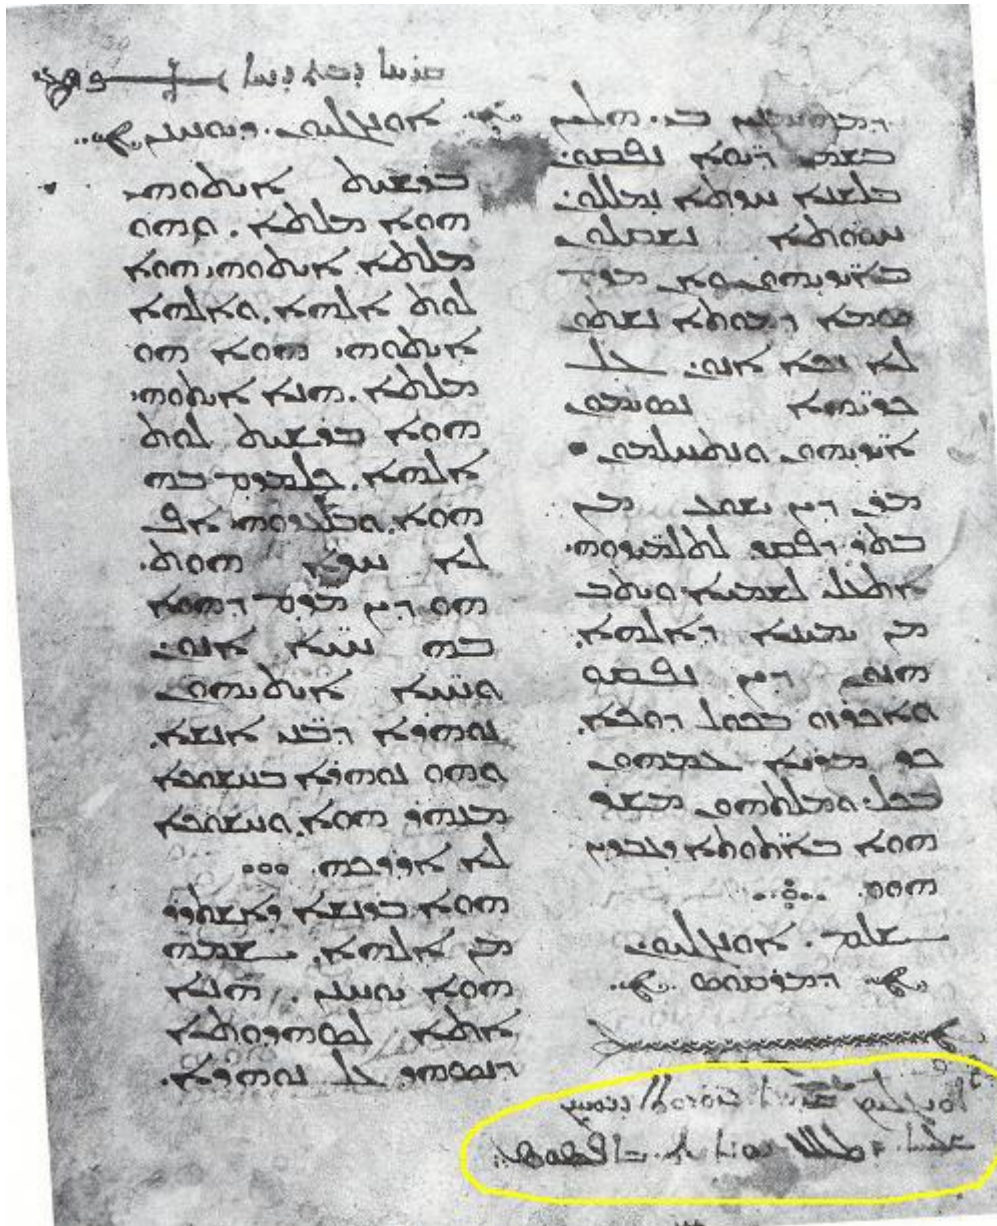 ܕܡܗܝܡܢܝܢ ܒܝ. ܗܠܝܢ
ܒܫܡܝ ܕܝ̈ܘܐ ܢܦܩܘܢ.
ܒܠܫܢܐ ܚܕܬܐ ܢܡܠܠܘܢ.
ܚܘ̈ܘܬܐ ܢܫܩܠܘܢ
ܒܐܝ̈ܕܝܗܘܢ ܘܐܢ ܡܕܡ
ܣܡܐ ܕܡܘܬܐ ܢܫܬܘܢ
ܠܐ ܢܟܐ ܐܢܘܢ. ܥܠ
ܟܪ̈ܝܗܐ ܢܣܝܡܘܢ
ܐܝ̈ܕܝܗܘܢ ܘܢܬܚܠܡܘܢ܀
ܡܪܢ ܕܝܢ ܝܫܘܥ ܡܢ
ܒܬܪ ܕܦܩܕ ܠܬܠܡܝ̈ܕܘܗܝ
ܐܬܥܠܝ ܠܫܡܝܐ ܘܝܬܒ
ܡܢ ܝܡܝܢܐ ܕܐܠܗܐ.
ܗܢܘܢ ܕܝܢ ܢܦܩܘ
ܘܐܟܪܙܘ ܒܟܠ ܕܘܟܐ.
ܟܕ ܡܪܝܐ ܥܡܗܘܢ
ܒܟܠ. ܘܡܠܬܗܘܢ ܡܫܪ
ܗܘܐ ܒܐܬ̈ܘܬܐ ܕܥܒܕܝܢ
ܗܘܘ.
ܫܠܡ. ܐܘܢܓܠܝܘܢ.
ܕܡܪܩܘܣ
ܐܘܢܓܠܝܘܢ. ܕܝܘܚܢܢ
ܒܪܫܝܬ ܐܝܬܘܗܝ
ܗܘܐ ܡܠܬܐ. ܘܗܘ
ܡܠܬܐ ܐܝܬܘܗܝ ܗܘܐ
ܠܘܬ ܐܠܗܐ. ܘܐܠܗܐ
ܐܝܬܘܗܝ ܗܘܐ ܗܘ
ܡܠܬܐ. ܗܢܐ ܐܝܬܘܗܝ
ܗܘܐ ܒܪܫܝܬ ܠܘܬ
ܐܠܗܐ. ܟܠܡܕܡ ܒܗ
ܗܘܐ. ܘܒܠܥܕܘܗܝ ܐܦ
ܠܐ ܚܕܐ ܗܘܬ.
ܗܘ ܕܝܢ ܡܕܡ ܕܗܘܐ
ܒܗ ܚܝ̈ܐ ܐܢܘܢ.
ܘܚܝ̈ܐ ܐܝܬܝܗܘܢ
ܢܘܗܪܐ ܕܒܢ̈ܝ ܐܢܫܐ.
ܘܗܘ ܢܘܗܪܐ ܒܚܫܘܟܐ
ܡܢܗܪ ܗܘܐ. ܘܚܫܘܟܐ
ܠܐ ܐܕܪܟܗ.
ܗܘܐ ܒܪܢܫܐ ܕܐܫܬܕܪ
ܡܢ ܐܠܗܐ. ܫܡܗ
ܗܘܐ ܝܘܚܢܢ. ܗܢܐ
ܐܬܐ ܠܣܗܕܘܬܐ
ܕܢܣܗܕ ܥܠ ܢܘܗܪܐ.